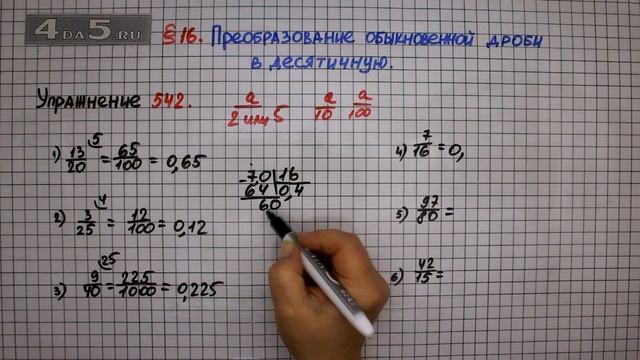 4DA5.RU
§16. Преобразование обыкновенной дроби
в десятичную.
Упражнение 542.
a/2 или 5 a/10 a/100
1) 13/20 ⁵ = 65/100 = 0,65
2) 3/25 ⁴ = 12/100 = 0,12
3) 9/40 ²⁵ = 225/1000 = 0,225
- 7,0 | 16
6,4 | 0,4
60
4) 7/16 = 0,
5) 97/80 =
6) 42/15 =